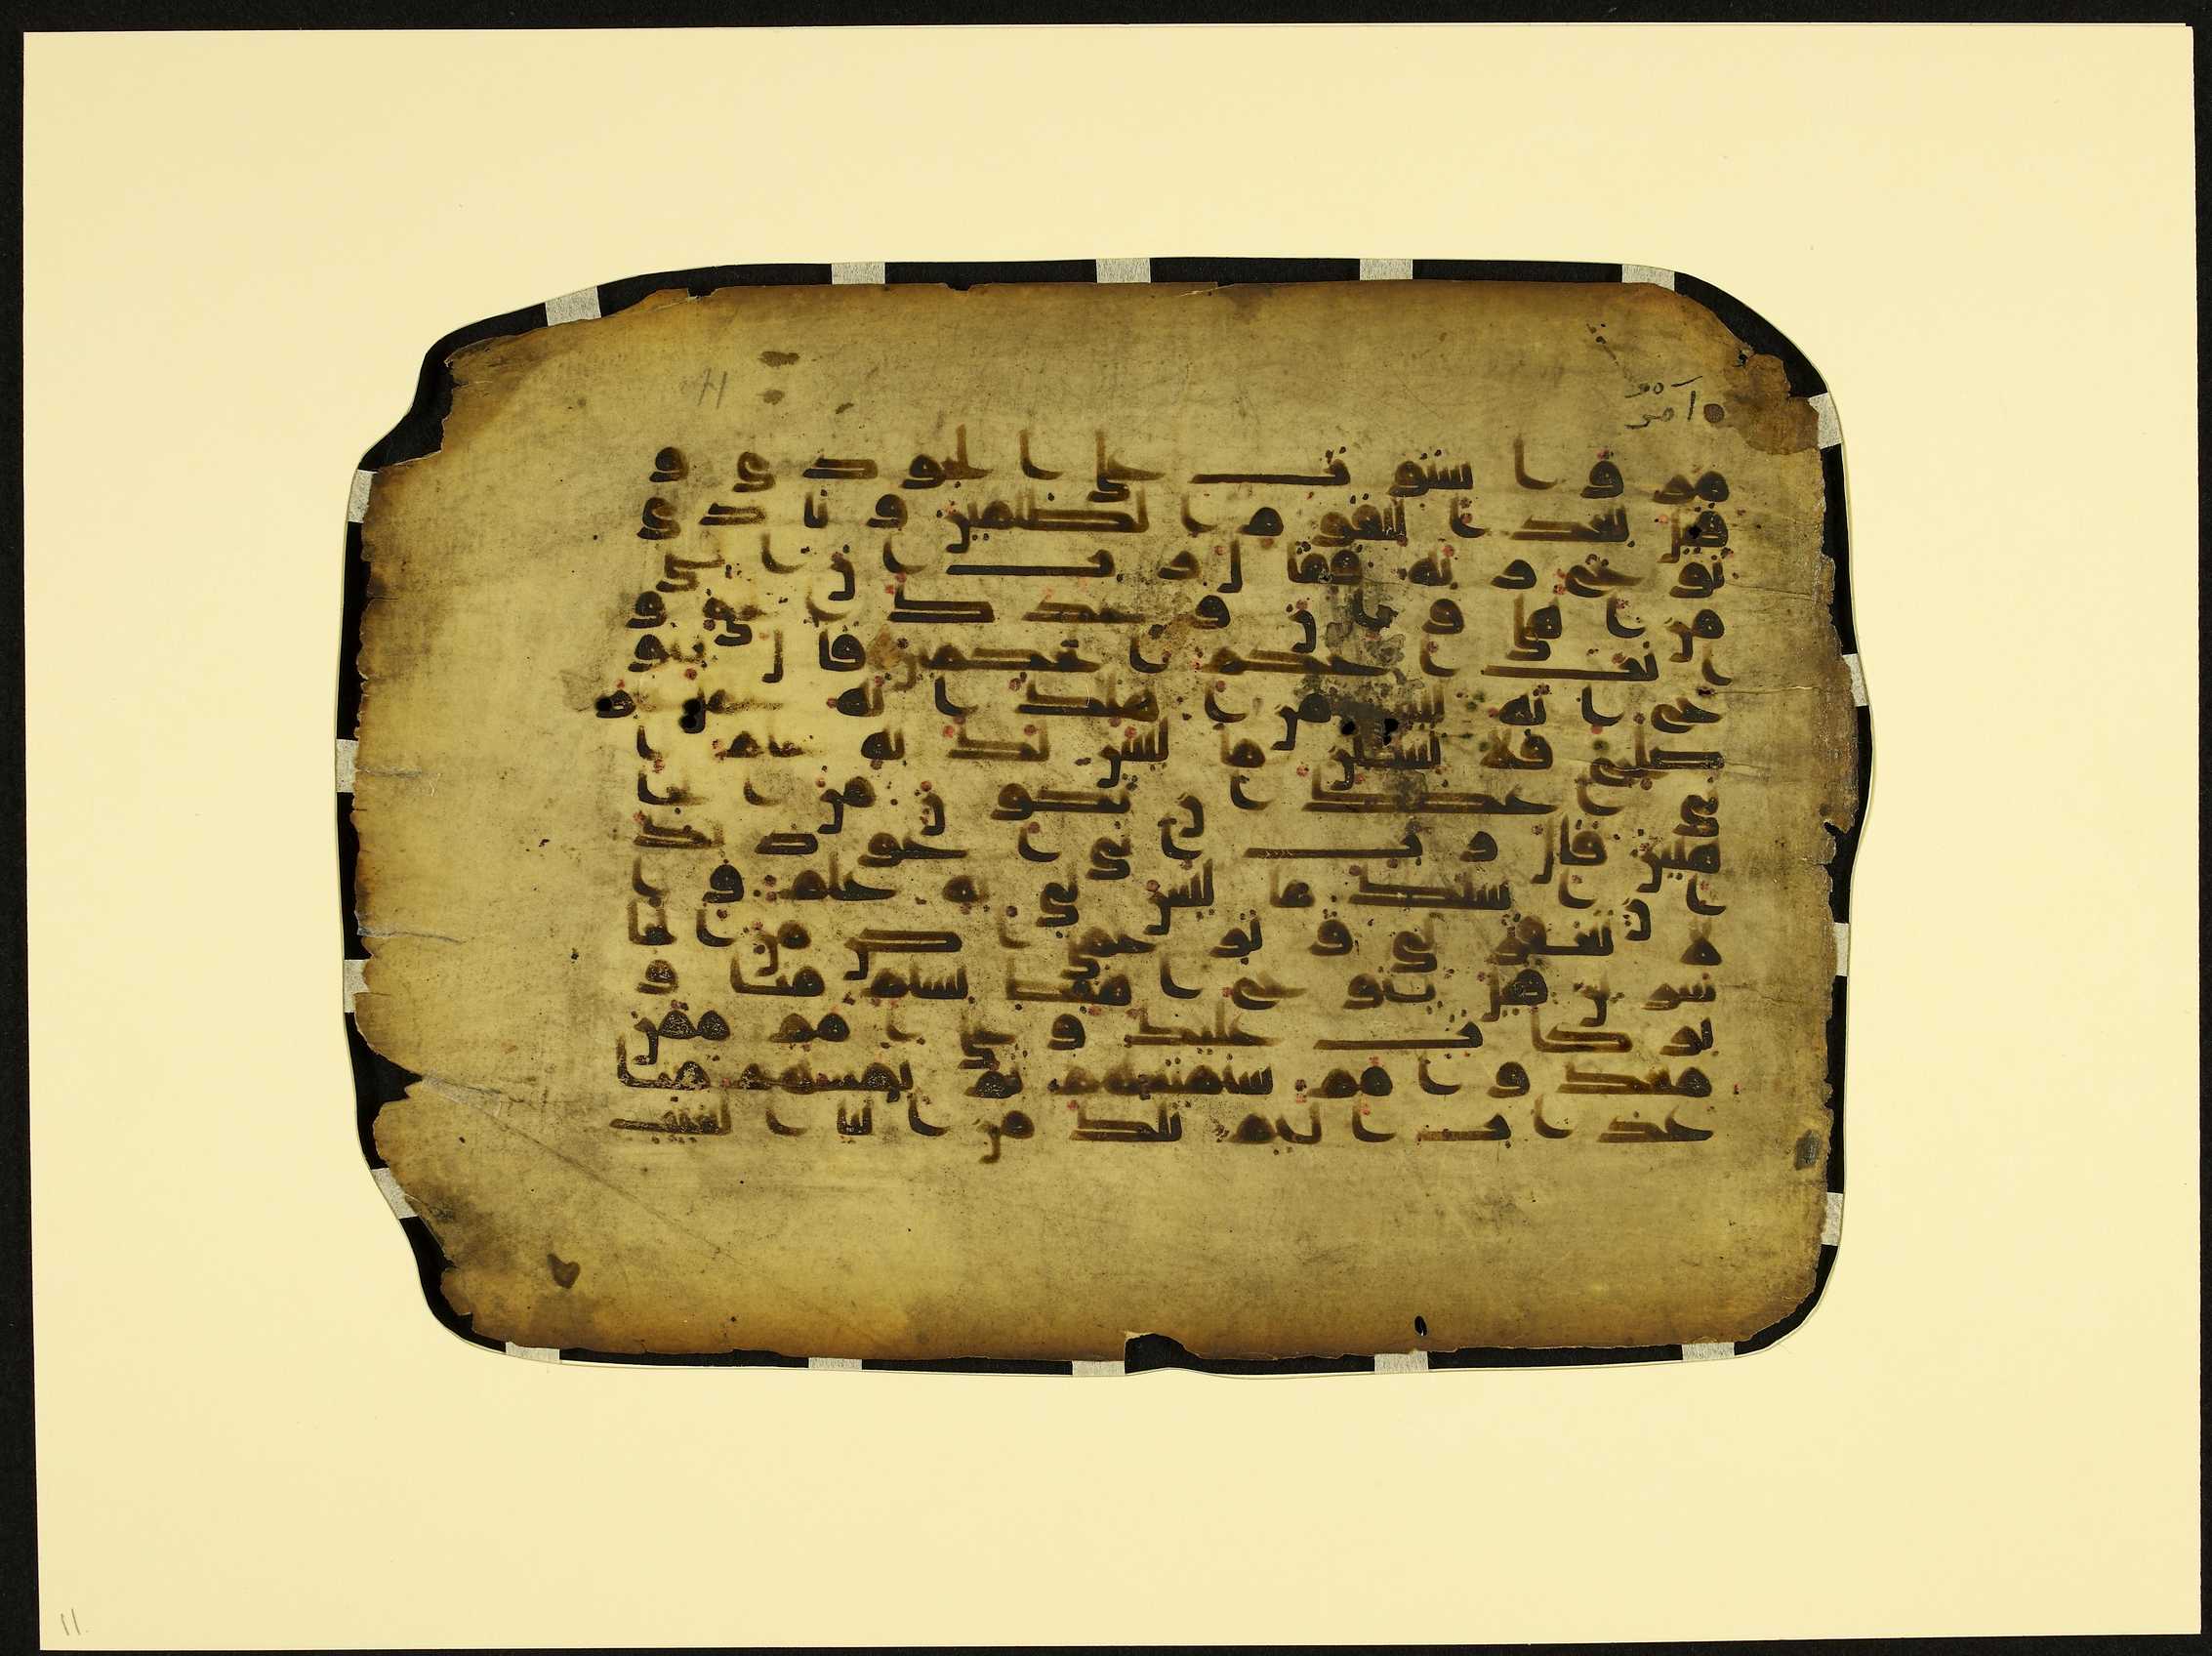 مر و ا ستو ت على ا لجو د ى و
قيل بعد ا للقو م ا لظلمين و نا د ى
نو ح ر به فقا ل ر ب ا ن ا بنى
من ا هلى و ا ن و عد ك ا لحق و
ا نت ا حكم ا لحكمين قا ل ينو
ح ا نه ليس من ا هلك ا نه عمل غير
صلح فلا تسلن ما ليس لك به علم ا
نى ا عظك ا ن تكو ن من ا لجا
هلين قا ل ر ب ا نى ا عو ذ بك
ا ن ا سلك ما ليس لى به علم و ا
لا تغفر لى و تر حمنى ا كن من ا لخا
سر ين قيل ينو ح ا هبط بسلم منا و
بر كا ت عليك و على ا مم ممن
معك و ا مم سنمتعهم ثم يمسهم منا
عذ ا ب ا ليم تلك من ا نبا ا لغيب
11